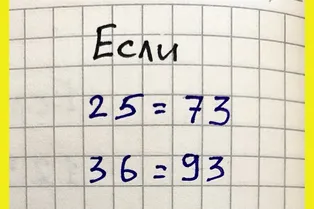 Если
25 = 73
36 = 93